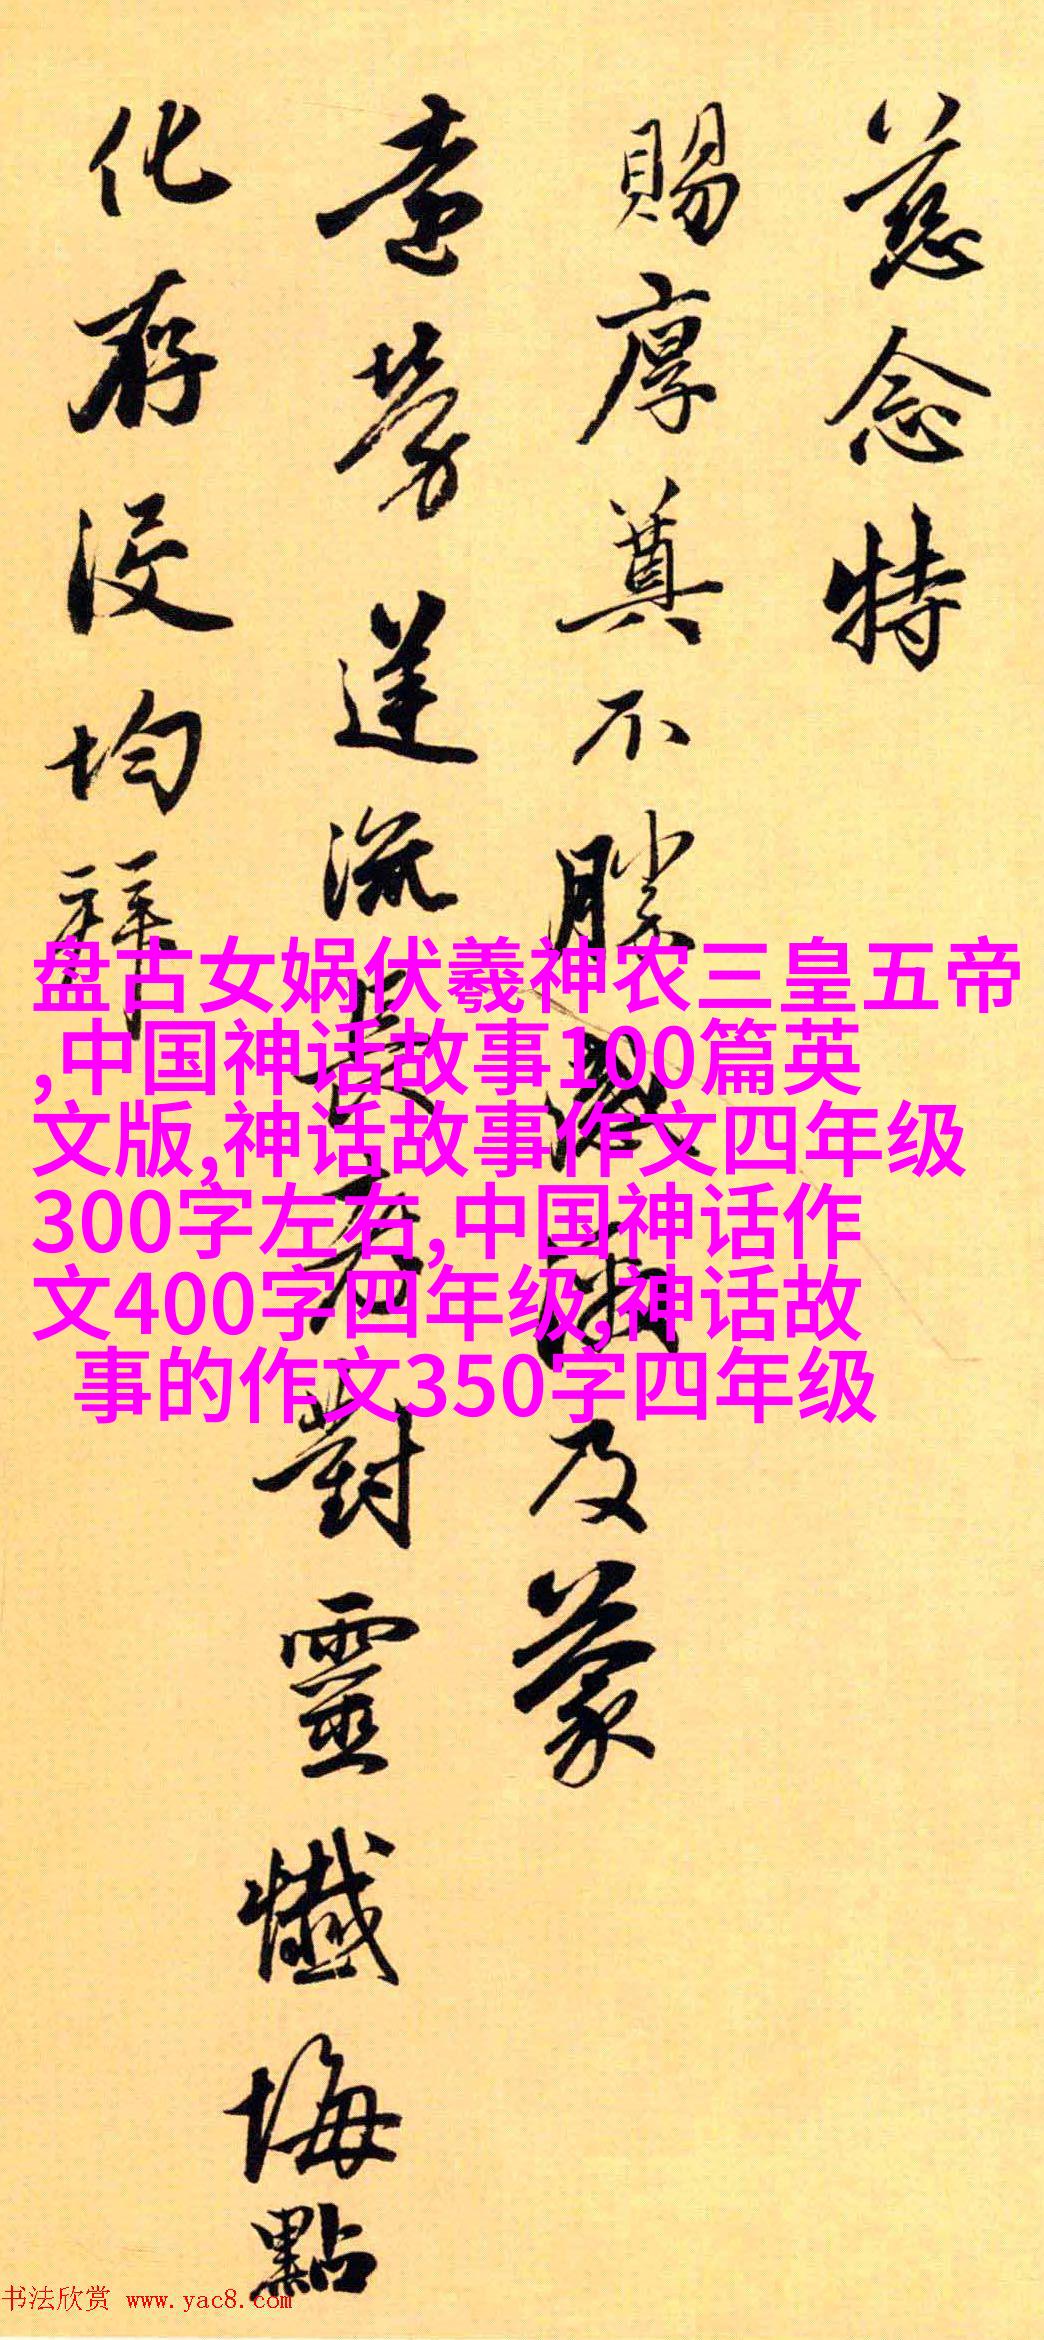 慈念特
賜厚奠不勝感及蒙
勞蓮流長老對靈懺悔點
化存没均
盘古女娲伏羲神农三皇五帝
,中国神话故事100篇英
文版,神话故事作文四年级
300字左右,中国神话作
文400字四年级,神话故
事的作文350字四年级
书法欣赏 www.yac8.com